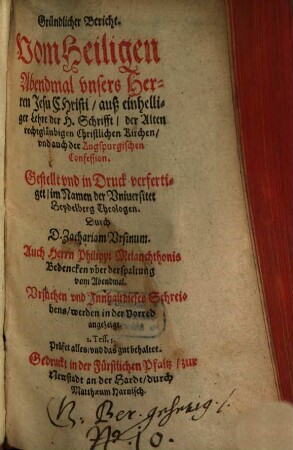 Gründlicher Bericht.
Vom Heiligen
Abendmal vnsers Her-
ren Jesu CHristi / auß einhelli-
ger Lehre der H. Schrifft / der Alten
rechtgläubigen Christlichen Kirchen /
vnd auch der Augspurgischen
Confession.
Gestellt vnd in Druck verferti-
get / im Namen der Vniuersitet
Heydelberg Theologen.
Durch
D. Zachariam Vrsinum.
Auch Herrn Philippi Melanchthonis
Bedencken vber der spaltung
vom Abendmal.
Vrsachen vnd Innhalt dieses Schrei-
bens / werden in der Vorred
angezeigt.
1. Tess. 5.
Prüfet alles / vnd das gut behaltet.
Gedruckt in der Fürstlichen Pfaltz / zur
Newstadt an der Hardt / durch
Matthæum Harnisch.
N. Ber.
No. 10.